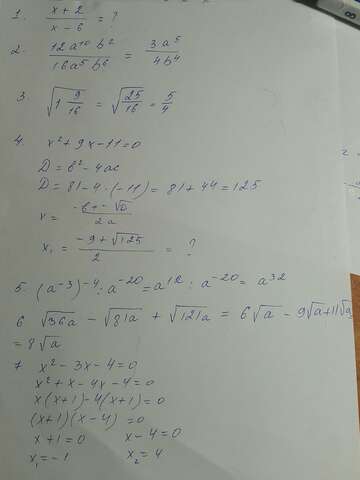 1. (x + 2)/(x - 6) = ?
2. 12a¹⁰b²/16a⁵b⁶ = 3a⁵/4b⁴
3. √(1 9/16) = √(25/16) = 5/4
4. x² + 9x - 11 = 0
D = b² - 4ac
D = 81 - 4 · (-11) = 81 + 44 = 125
x = (-b + - √D)/2a
x₁ = (-9 + √125)/2 = ?
5. (a⁻³)⁻⁴ : a⁻²⁰ = a¹² : a⁻²⁰ = a³²
6 √36a - √81a + √121a = 6√a - 9√a + 11√a
= 8√a
7 x² - 3x - 4 = 0
x² + x - 4x - 4 = 0
x(x+1) - 4(x+1) = 0
(x+1)(x-4) = 0
x + 1 = 0 x - 4 = 0
x₁ = -1 x₂ = 4